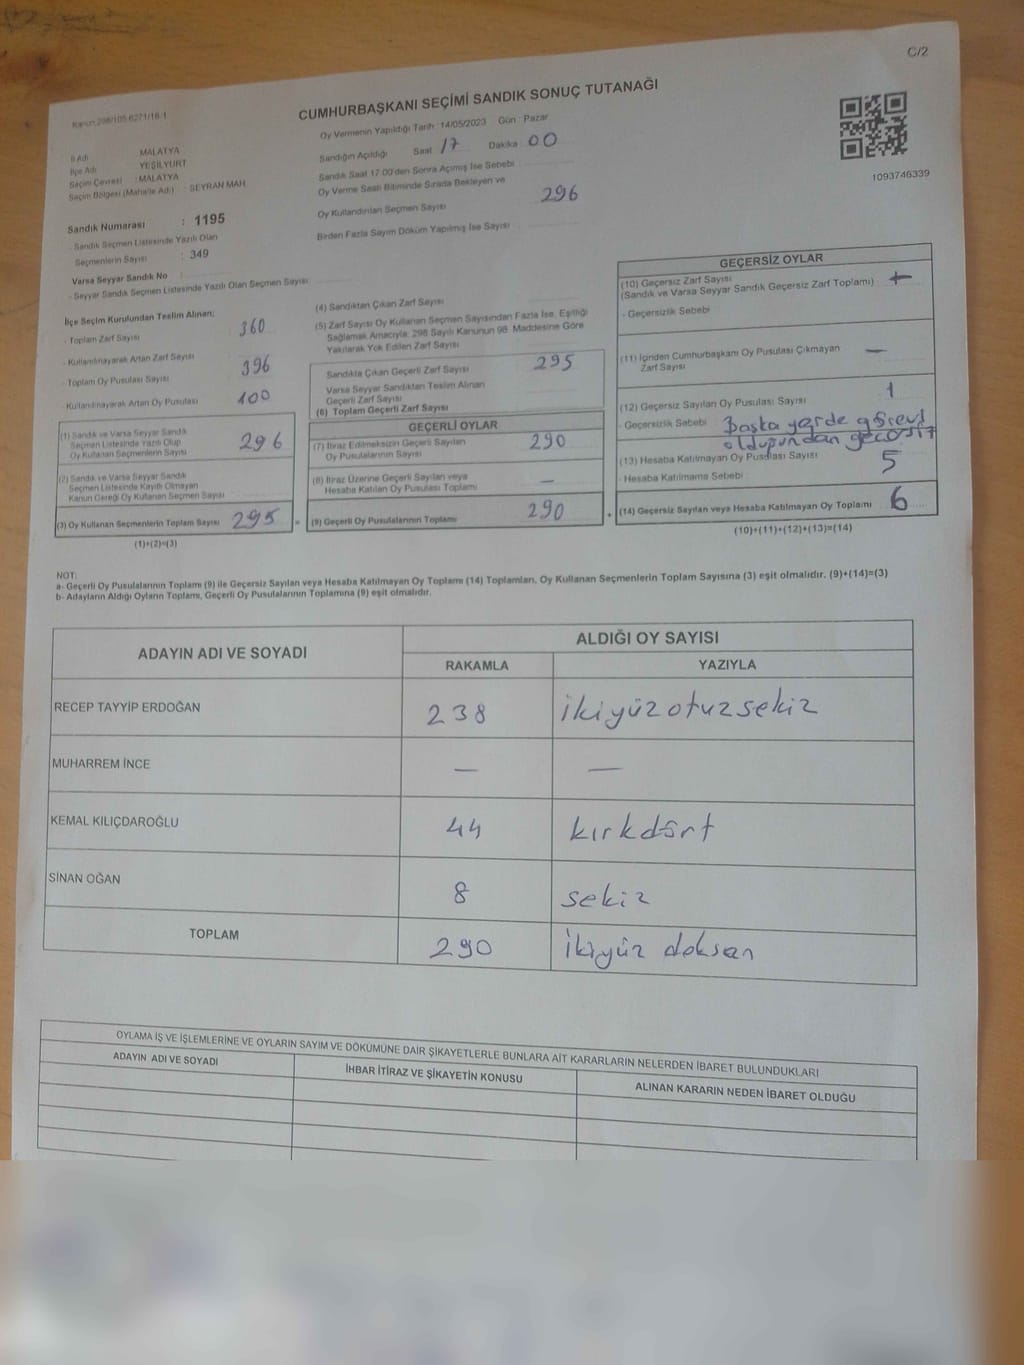 C/2
Kanun 298/105 6271/18-1
CUMHURBAŞKANI SEÇİMİ SANDIK SONUÇ TUTANAĞI
Oy Vermenin Yapıldığı Tarih : 14/05/2023 Gün : Pazar
Sandığın Açıldığı Saat 17 Dakika 00
Sandık Saat 17.00'den Sonra Açılmış İse Sebebi
Oy Verme Saati Bitiminde Sırada Bekleyen ve
Oy Kullandırılan Seçmen Sayısı 296
Birden Fazla Sayım Döküm Yapılmış İse Sayısı
1093746339
İl Adı : MALATYA
İlçe Adı : YEŞİLYURT
Seçim Çevresi : MALATYA
Seçim Bölgesi (Mahalle Adı) : SEYRAN MAH.
Sandık Numarası : 1195
- Sandık Seçmen Listesinde Yazılı Olan
Seçmenlerin Sayısı : 349
Varsa Seyyar Sandık No :
- Seyyar Sandık Seçmen Listesinde Yazılı Olan Seçmen Sayısı:
İlçe Seçim Kurulundan Teslim Alınan;
- Toplam Zarf Sayısı 360
- Kullanılmayarak Artan Zarf Sayısı
- Toplam Oy Pusulası Sayısı 396
- Kullanılmayarak Artan Oy Pusulası 100
(1) Sandık ve Varsa Seyyar Sandık
Seçmen Listesinde Yazılı Olup
Oy Kullanan Seçmenlerin Sayısı 296
(2) Sandık ve Varsa Seyyar Sandık
Seçmen Listesinde Kayıtlı Olmayan
Kanun Gereği Oy Kullanan Seçmen Sayısı
(3) Oy Kullanan Seçmenlerin Toplam Sayısı 295
(1)+(2)=(3)
(4) Sandıktan Çıkan Zarf Sayısı
(5) Zarf Sayısı Oy Kullanan Seçmen Sayısından Fazla İse, Eşitliği
Sağlamak Amacıyla; 298 Sayılı Kanunun 98. Maddesine Göre
Yakılarak Yok Edilen Zarf Sayısı
Sandıkta Çıkan Geçerli Zarf Sayısı 295
Varsa Seyyar Sandıktan Teslim Alınan
Geçerli Zarf Sayısı
(6) Toplam Geçerli Zarf Sayısı
GEÇERLİ OYLAR
(7) İtiraz Edilmeksizin Geçerli Sayılan
Oy Pusulalarının Sayısı 290
(8) İtiraz Üzerine Geçerli Sayılan veya
Hesaba Katılan Oy Pusulası Toplamı —
= (9) Geçerli Oy Pusulalarının Toplamı 290
GEÇERSİZ OYLAR
(10) Geçersiz Zarf Sayısı
(Sandık ve Varsa Seyyar Sandık Geçersiz Zarf Toplamı)
- Geçersizlik Sebebi
(11) İçinden Cumhurbaşkanı Oy Pusulası Çıkmayan
Zarf Sayısı —
(12) Geçersiz Sayılan Oy Pusulası Sayısı 1
- Geçersizlik Sebebi Başka yerde görevli
olduğundan geçersiz
(13) Hesaba Katılmayan Oy Pusulası Sayısı 5
- Hesaba Katılmama Sebebi
+ (14) Geçersiz Sayılan veya Hesaba Katılmayan Oy Toplamı 6
(10)+(11)+(12)+(13)=(14)
NOT:
a- Geçerli Oy Pusulalarının Toplamı (9) ile Geçersiz Sayılan veya Hesaba Katılmayan Oy Toplamı (14) Toplamları, Oy Kullanan Seçmenlerin Toplam Sayısına (3) eşit olmalıdır. (9)+(14)=(3)
b- Adayların Aldığı Oyların Toplamı, Geçerli Oy Pusulalarının Toplamına (9) eşit olmalıdır.
ADAYIN ADI VE SOYADI ALDIĞI OY SAYISI
RAKAMLA YAZIYLA
RECEP TAYYİP ERDOĞAN 238 ikiyüzotuzsekiz
MUHARREM İNCE — —
KEMAL KILIÇDAROĞLU 44 kırkdört
SİNAN OĞAN 8 sekiz
TOPLAM 290 ikiyüz doksan
OYLAMA İŞ VE İŞLEMLERİNE VE OYLARIN SAYIM VE DÖKÜMÜNE DAİR ŞİKAYETLERLE BUNLARA AİT KARARLARIN NELERDEN İBARET BULUNDUKLARI
ADAYIN ADI VE SOYADI İHBAR İTİRAZ VE ŞİKAYETİN KONUSU ALINAN KARARIN NEDEN İBARET OLDUĞU